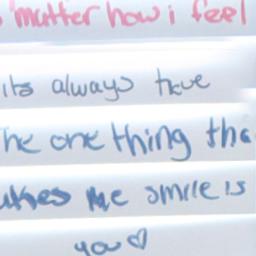 matter how i feel
its always true
The one thing tha
akes me smile is
you ♡